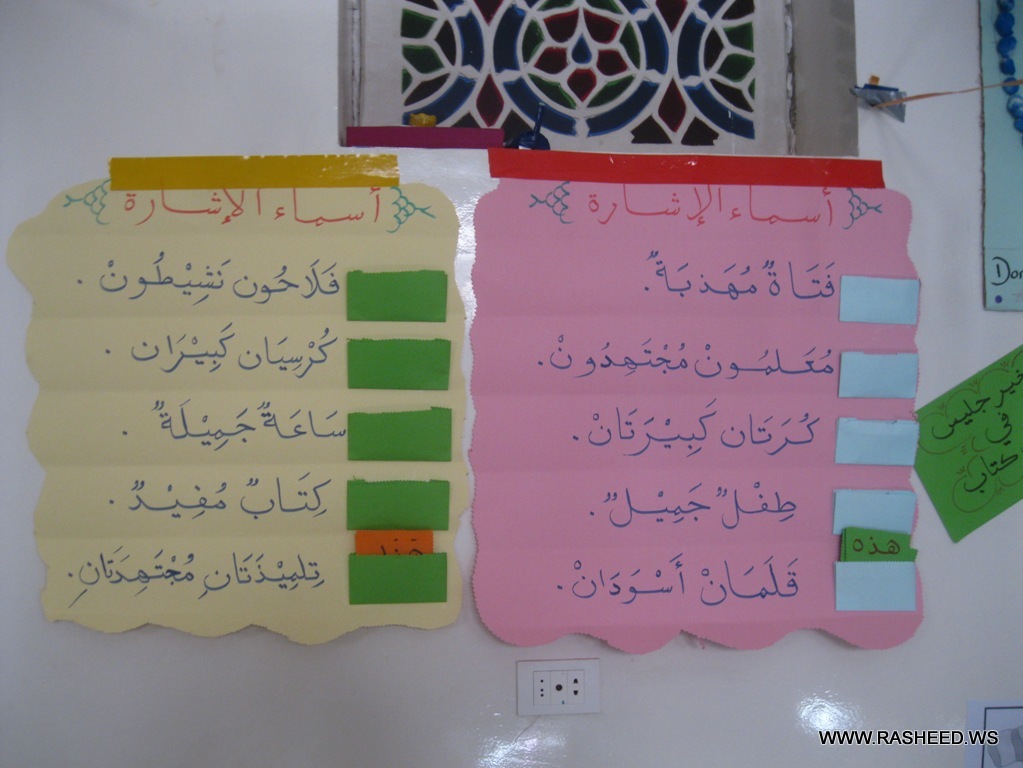 أسماء الإشارة
فَتَاةٌ مُهَذبَةٌ.
مُعَلمُونْ مُجْتَهِدُونْ.
كُرَتَان كَبِيْرَتَانْ.
طِفْلٌ جَمِيْلٌ.
هذه
قَلَمَانْ أَسْوَدَانْ.
أسماء الإشارة
فَلَاحُون نَشِيْطُونْ.
كُرْسِيَان كَبِيْرَان.
سَاعَةٌ جَمِيْلَةٌ.
كِتَابٌ مُفِيْدٌ.
هذا
تِلمِيْذَتَانِ مُجْتَهِدَتَانِ.
خير جليس
في
كتاب
WWW.RASHEED.WS